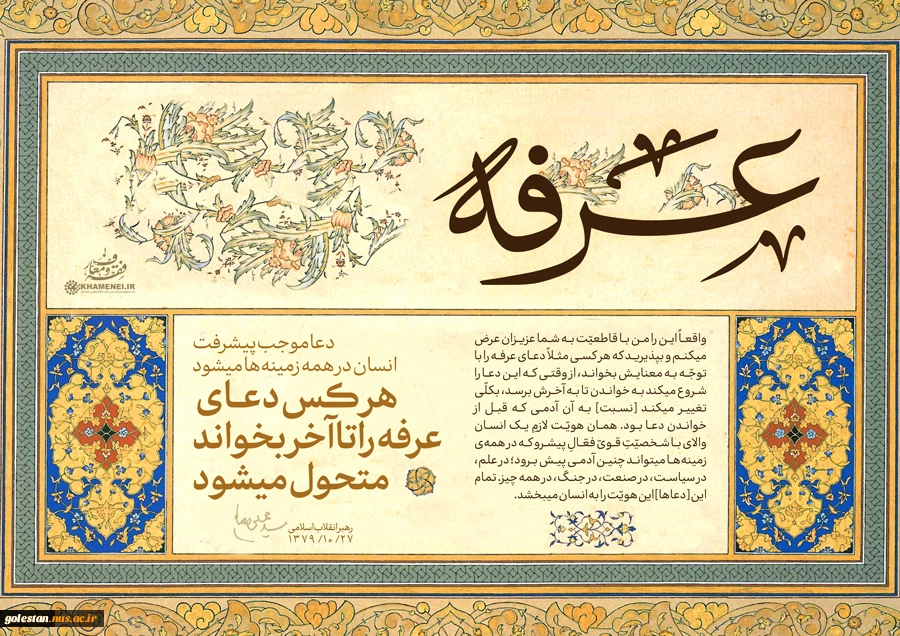 عرفه
فقه و معارف
KHAMENEI.IR
واقعاً این را من با قاطعیّت به شما عزیزان عرض
میکنم و بپذیرید که هر کسی مثلاً دعای عرفه را با
توجّه به معنایش بخواند، از وقتی که این دعا را
شروع میکند به خواندن تا به آخرش برسد، بکلّی
تغییر میکند [نسبت] به آن آدمی که قبل از
خواندن دعا بود. همان هویّت لازمِ یک انسان
والای با شخصیّتِ قویّ فعّالِ پیشرو که در همه‌ی
زمینه‌ها میتواند چنین آدمی پیش برود؛ در علم،
در سیاست، در صنعت، در جنگ، در همه چیز. تمام
این [دعاها] این هویّت را به انسان میبخشد.
دعا موجب پیشرفت
انسان در همه زمینه‌ها میشود
هر کس دعای
عرفه را تا آخر بخواند
متحول میشود
رهبر انقلاب اسلامی
۱۳۷۹/۱۰/۲۷
golestan.nus.ac.ir